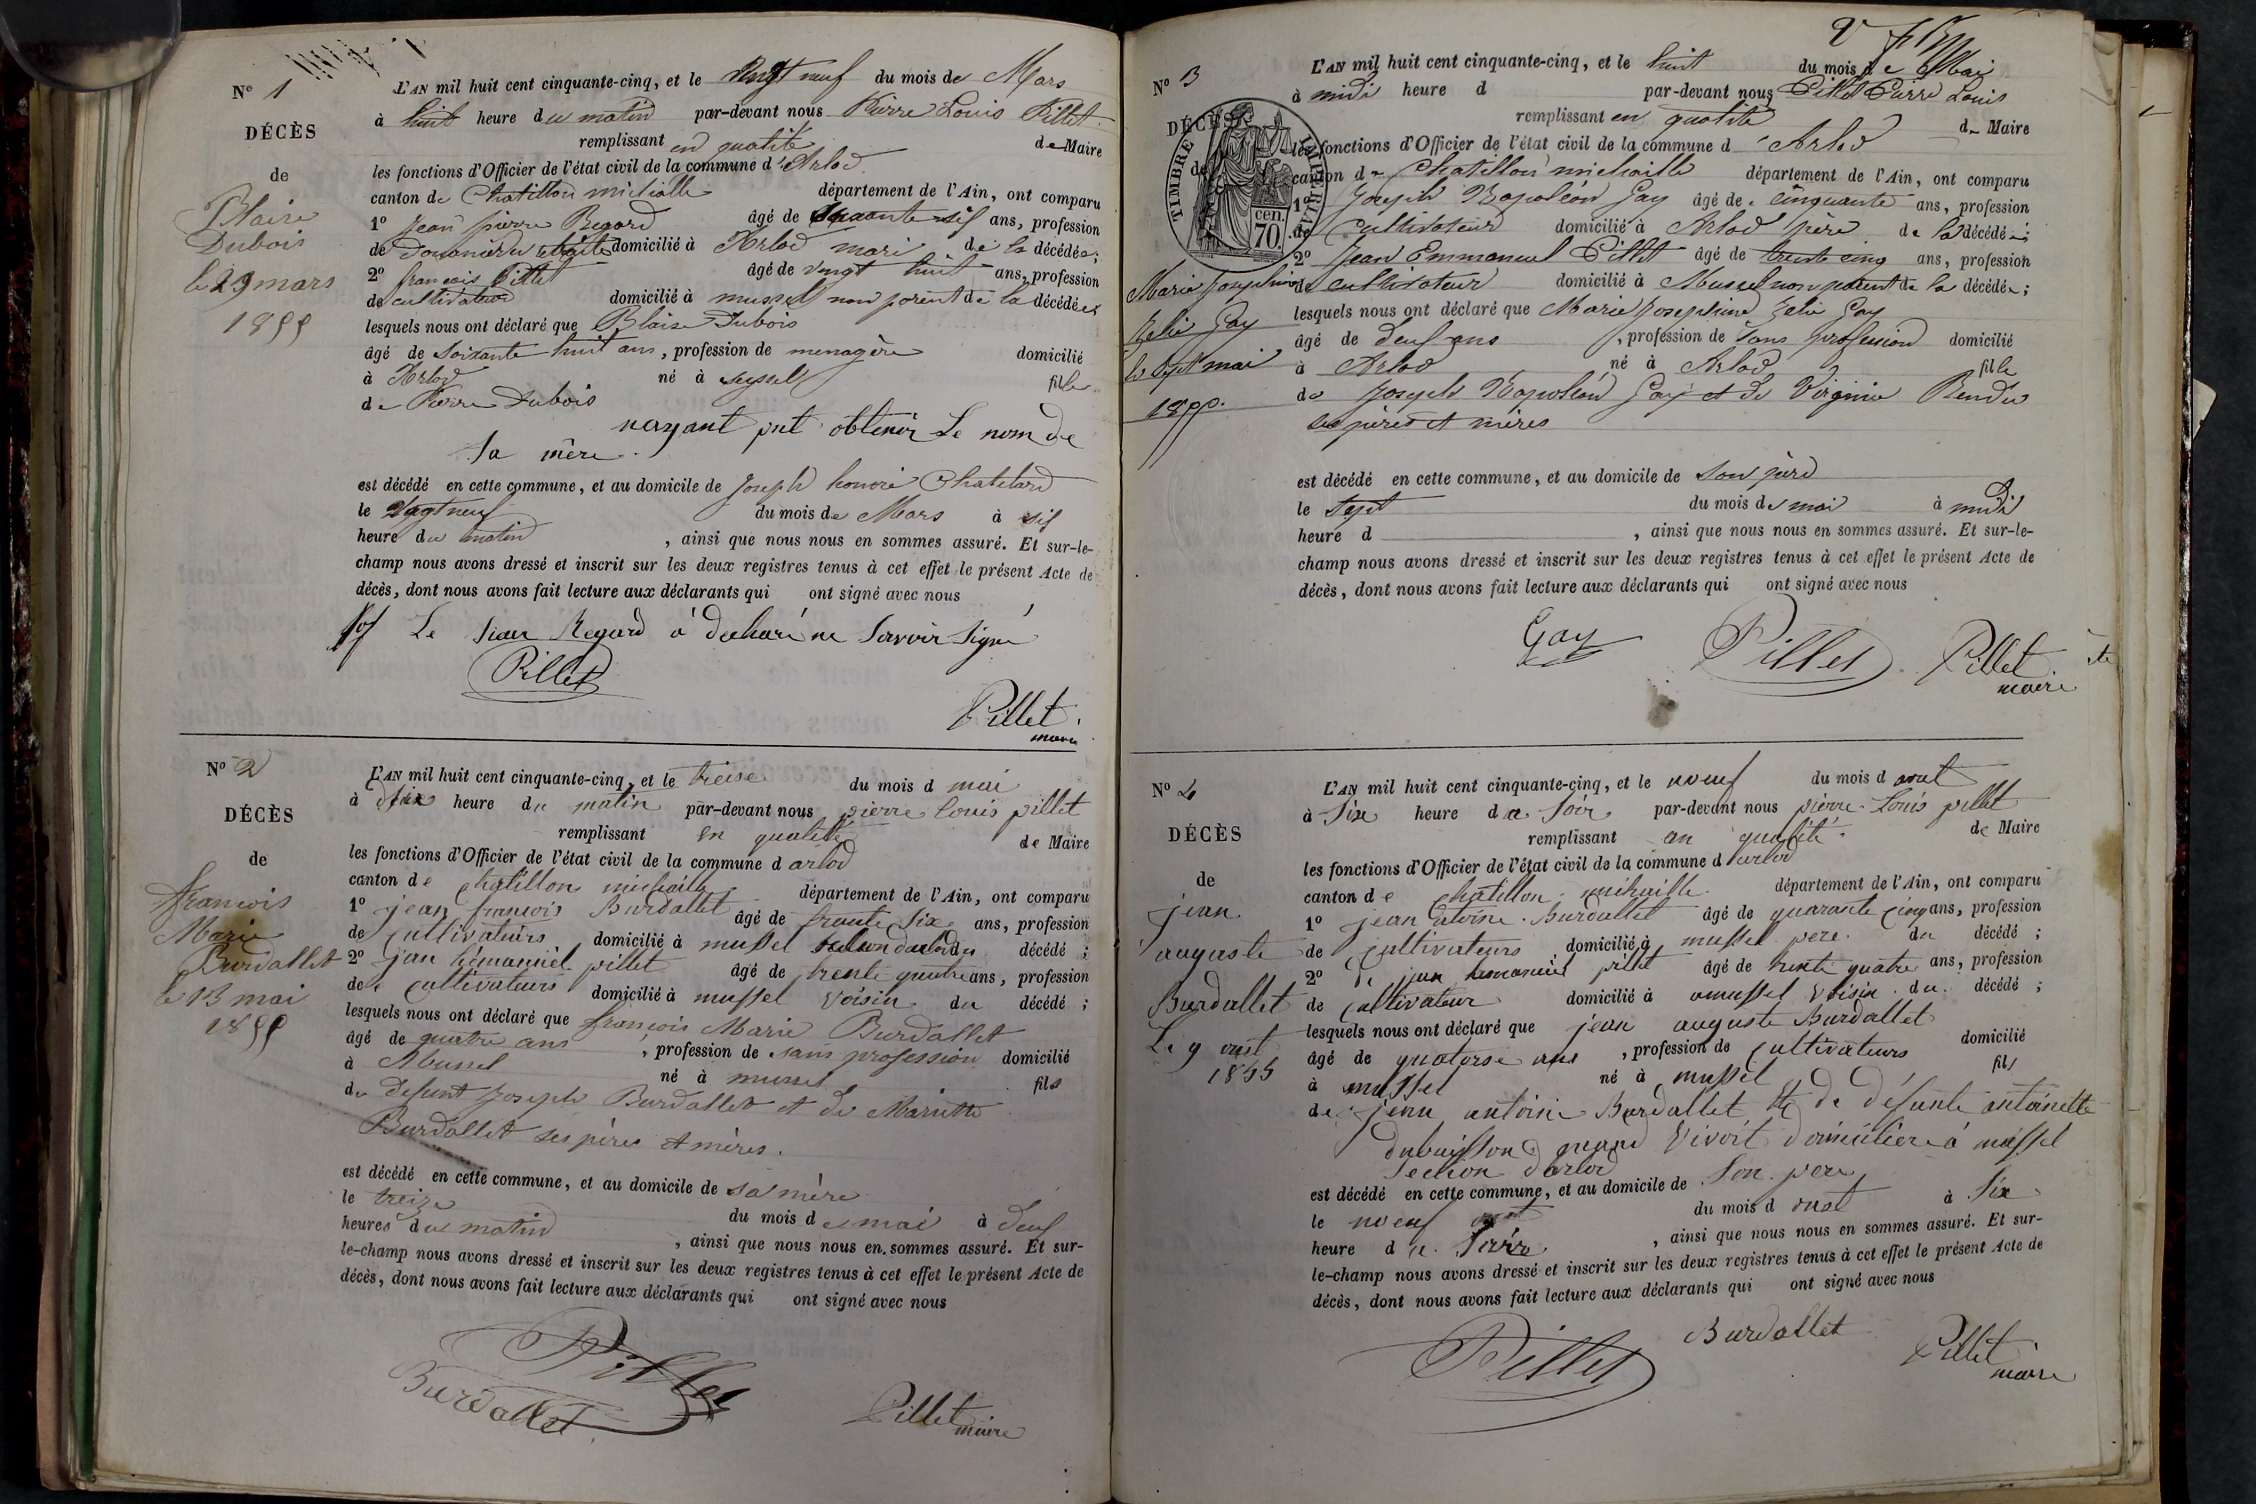 N° 1
DÉCÈS
de
Blaise
Dubois
le 29 mars
1855
L'AN mil huit cent cinquante-cinq, et le vingt neuf du mois de Mars
à huit heure du matin par-devant nous Pierre Louis Pillet
remplissant en qualité de Maire
les fonctions d'Officier de l'état civil de la commune d'Arlod
canton de Chatillon michaille département de l'Ain, ont comparu
1° Jean pierre Regard âgé de ans, profession
de Douanier en retraite domicilié à Arlod mari de la décédée;
2° françois Pillet âgé de vingt huit ans, profession
de cultivateur domicilié à mussel non parent de la décédée;
lesquels nous ont déclaré que Blaise Dubois
âgé de soixante huit ans, profession de menagère domicilié
à Arlod né à seyssel fille
de Pierre Dubois
nayant put obtenir Le nom de
Sa mère.
est décédé en cette commune, et au domicile de Joseph honoré Chatelard
le vingt neuf du mois de Mars à six
heure du matin, ainsi que nous nous en sommes assuré. Et sur-le-
champ nous avons dressé et inscrit sur les deux registres tenus à cet effet le présent Acte de
décès, dont nous avons fait lecture aux déclarants qui ont signé avec nous
Le sieur Regard à declaré ne savoir signé
Pillet
Pillet
maire
N° 2
DÉCÈS
de
françois
Marie
Burdallet
le 13 mai
1855
L'AN mil huit cent cinquante-cinq, et le treise du mois d mai
à dix heure du matin par-devant nous pierre louis pillet
remplissant en qualité de Maire
les fonctions d'Officier de l'état civil de la commune d arlod
canton de chatillon michaille département de l'Ain, ont comparu
1° jean françois Burdallet âgé de trante six ans, profession
de cultivateurs domicilié à mussel du décédé;
2° jean hemanuel pillet âgé de trente quatre ans, profession
de cultivateurs domicilié à mussel voisin du décédé;
lesquels nous ont déclaré que françois Marie Burdallet
âgé de quatre ans, profession de sans profession domicilié
à Mussel né à mussel fils
de defunt Joseph Burdallet et de Mariette
Burdallet ses pères et mères.
est décédé en cette commune, et au domicile de sa mère
le treize du mois de mai à deux
heures du matin, ainsi que nous nous en sommes assuré. Et sur-
le-champ nous avons dressé et inscrit sur les deux registres tenus à cet effet le présent Acte de
décès, dont nous avons fait lecture aux déclarants qui ont signé avec nous
Pillet
Burdallet
Pillet
maire
N° 3
DÉCÈS
de
TIMBRE IMPÉRIAL
70 cen.
Marie Josephine
Zelie Gay
le sept mai
1855.
L'AN mil huit cent cinquante-cinq, et le huit du mois de Mai
à midi heure d par-devant nous Pillet Pierre Louis
remplissant en qualité de Maire
les fonctions d'Officier de l'état civil de la commune d'Arlod
canton de Chatillon michaille département de l'Ain, ont comparu
1° Joseph Napoléon Gay âgé de cinquante ans, profession
de cultivateur domicilié à Arlod père de la décédée;
2° Jean Emmanuel Pillet âgé de trente cinq ans, profession
de cultivateur domicilié à Mussel non parent de la décédée;
lesquels nous ont déclaré que Marie Josephine Zelie Gay
âgé de deux ans, profession de sans profession domicilié
à Arlod né à Arlod fille
de Joseph Napoléon Gay et de Virginie Rendu
ses pères et mères
est décédé en cette commune, et au domicile de son père
le sept du mois de mai à midi
heure d, ainsi que nous nous en sommes assuré. Et sur-le-
champ nous avons dressé et inscrit sur les deux registres tenus à cet effet le présent Acte de
décès, dont nous avons fait lecture aux déclarants qui ont signé avec nous
Gay Pillet Pillet
maire
N° 4
DÉCÈS
de
jean
auguste
Burdallet
Le 9 out
1855
L'AN mil huit cent cinquante-cinq, et le noeuf du mois d aout
à Six heure du Soir par-devant nous pierre Louis pillet
remplissant an qualité de Maire
les fonctions d'Officier de l'état civil de la commune d arlod
canton de chatillon michaille département de l'Ain, ont comparu
1° jean antoine Burdallet âgé de quarante cinq ans, profession
de cultivateurs domicilié à mussel pere du décédé;
2° jean hemanuel pillet âgé de trente quatre ans, profession
de cultivateur domicilié à mussel voisin du décédé;
lesquels nous ont déclaré que jean auguste Burdallet
âgé de quatorse ans, profession de cultivateurs domicilié
à mussel né à mussel fils
de jean antoine Burdallet de défunte antoinette
dubuisson quand vivoit domicilière à mussel
section d'arlod
est décédé en cette commune, et au domicile de Son pere
le noeuf du mois d out à Six
heure du Soir, ainsi que nous nous en sommes assuré. Et sur-
le-champ nous avons dressé et inscrit sur les deux registres tenus à cet effet le présent Acte de
décès, dont nous avons fait lecture aux déclarants qui ont signé avec nous
Pillet Burdallet Pillet
maire